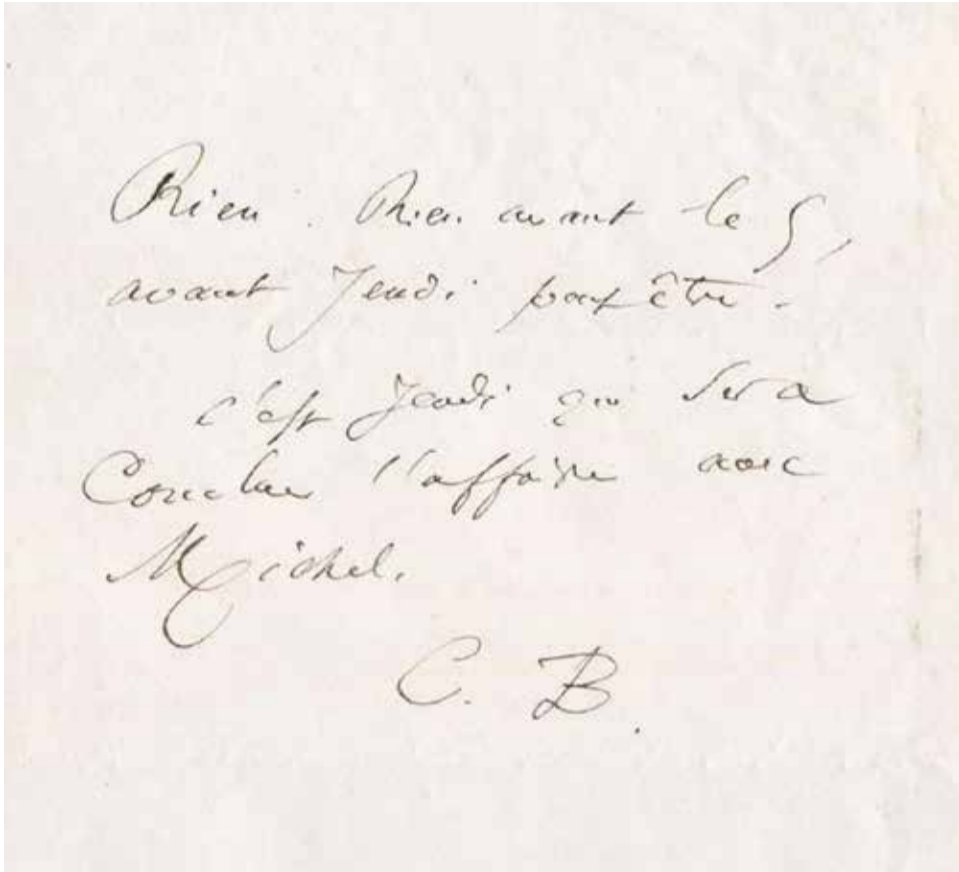 Rien. Rien avant le 5,
avant Jeudi peut être.
c'est Jeudi que sera
Conclue l'affaire avec
Michel.
C. B.